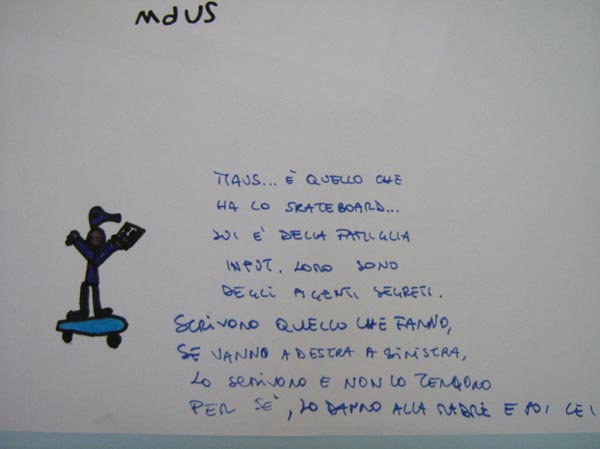 MAUS
MAUS... È QUELLO CHE
HA LO SKATEBOARD...
LUI E' DELLA FAMIGLIA
INPUT. LORO SONO
DEGLI AGENTI SEGRETI.
SCRIVONO QUELLO CHE FANNO,
SE VANNO A DESTRA A SINISTRA,
LO SCRIVONO E NON LO TENGONO
PER SE', LO DANNO ALLA MADRE E POI LEI